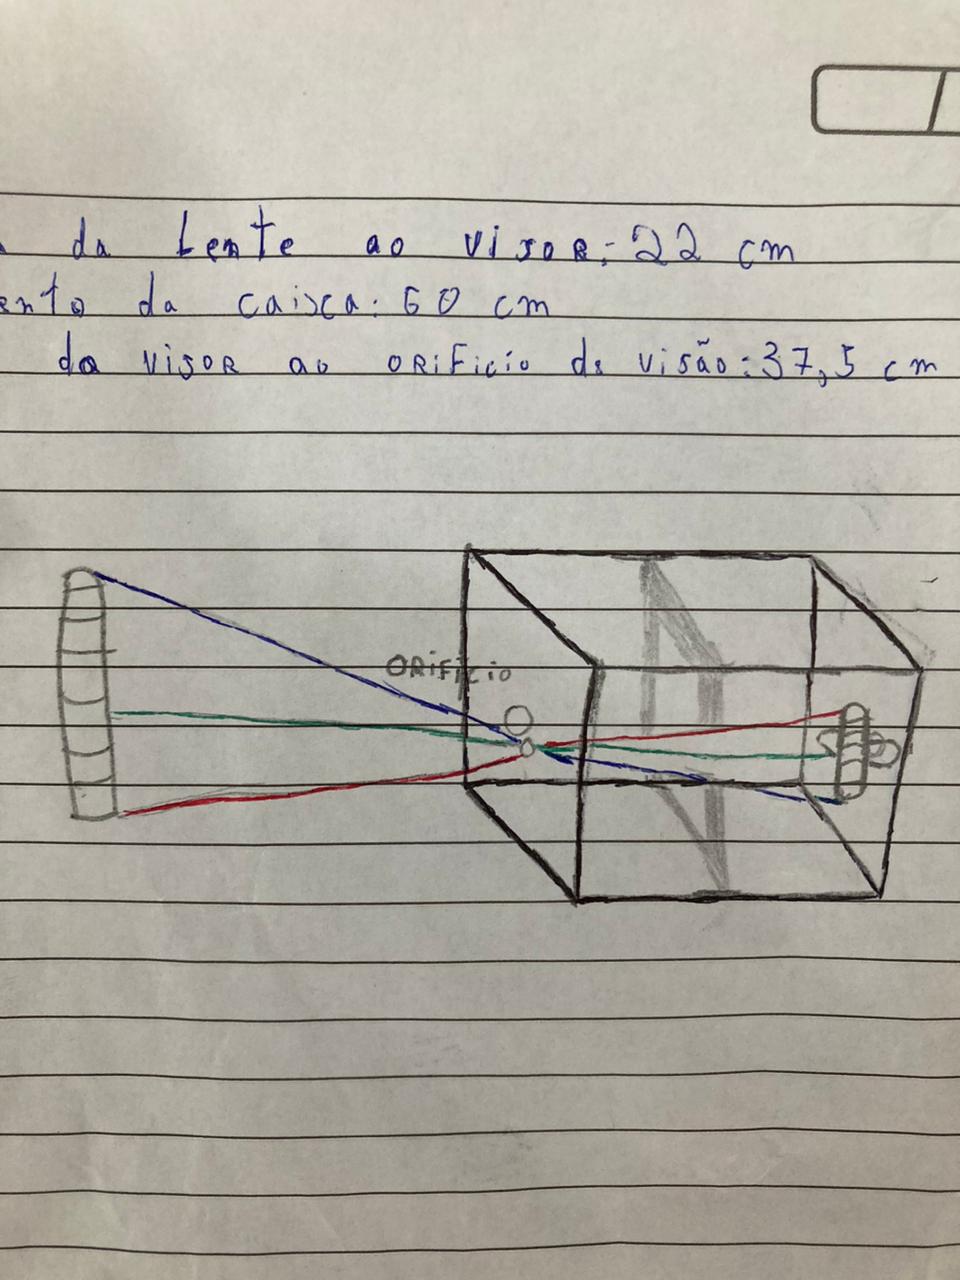 da Lente ao visor: 22 cm
ento da caixa: 60 cm
do visor ao orifício de visão: 37,5 cm
ORifício